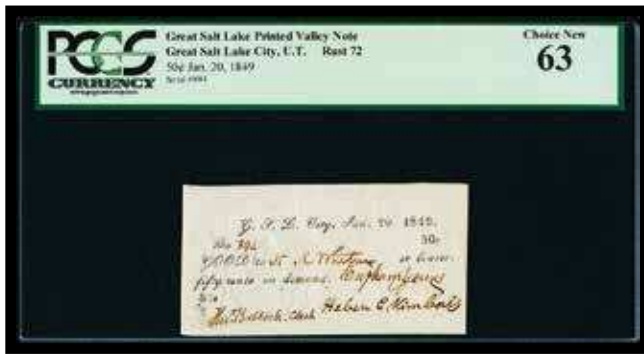 PCGS
CURRENCY
Great Salt Lake Printed Valley Note
Great Salt Lake City, U.T. Rust 72
50¢ Jan. 20, 1849
Choice New
63
G. S. L. City, Jan. 20 1849.
No 50
GOOD to N. K. Whitney or bearer
fifty cents in demand.
Tho. Bullock, Clerk Heber C. Kimball